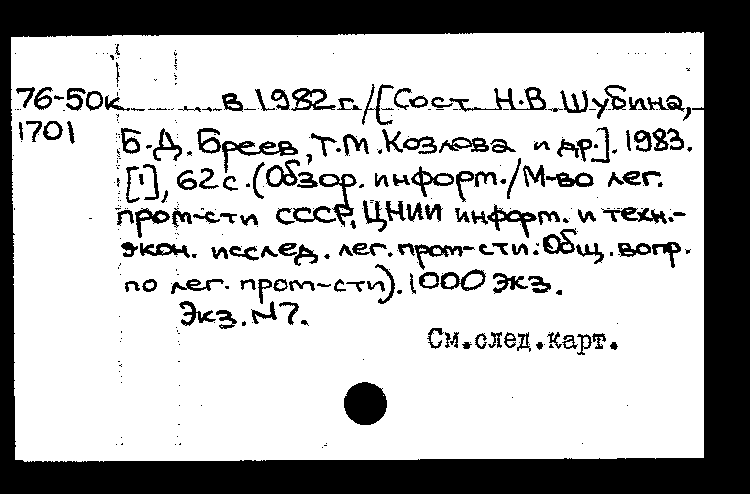 76-50к ... в 1982 г. / [Сост. Н.В. Шубина,
1701 Б.Д. Бреев, Т.М. Козлова и др.]. 1983.
[1], 62 с. (Обзор. информ. / М-во лег.
пром-сти СССР, ЦНИИ информ. и техн.-
экон. исслед. лег. пром-сти. Общ. вопр.
по лег. пром-сти). 1000 экз.
Экз. №7.
См.след.карт.